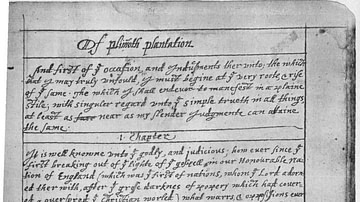 Of plimoth plantation
And first of yͤ occasion, and Indusments ther unto; the which
that I may truly unfould, I must begine at yͤ very roote, & rise
of yͤ same. The which I shall endevor to manefest in a plaine
stile; with singuler regard unto yͤ simple trueth in all things,
at least as farr near as my slender Judgmente can attaine
the same.
1 Chapter
It is well knowne unto yͤ godly, and judicious, how ever since yͤ
first breaking out of yͤ lighte of yͤ gospell, in our Honourable na-
tion of England (which was yͤ first of nations, whom yͤ Lord adorn-
ed ther with, after yͤ grose darknes of popery which had cover-
ed & overspred yͤ christian world) what warrs, & oppositions ever